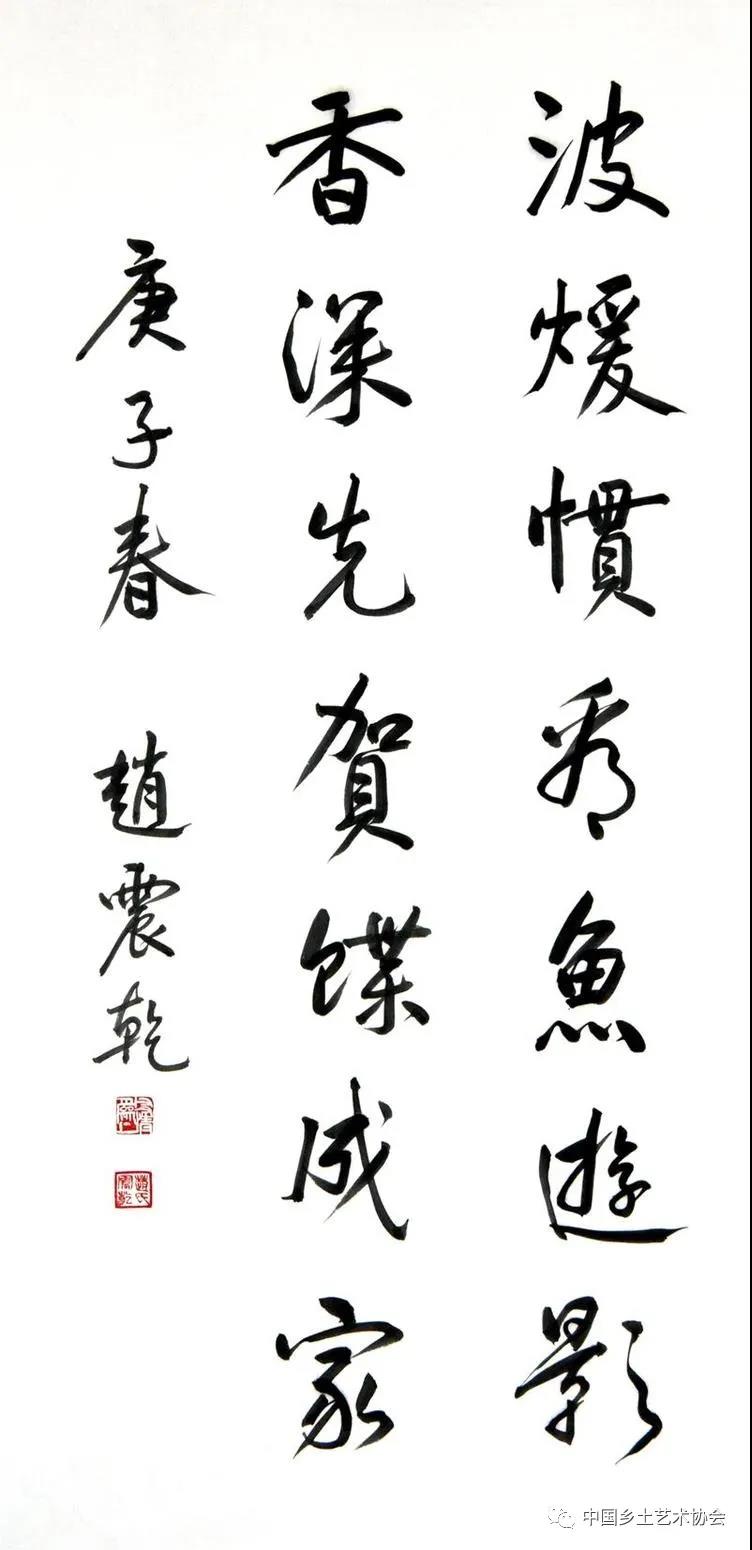 波煖慣看魚遊影
香深先賀蝶成家
庚子春 趙震乾
中国乡土艺术协会